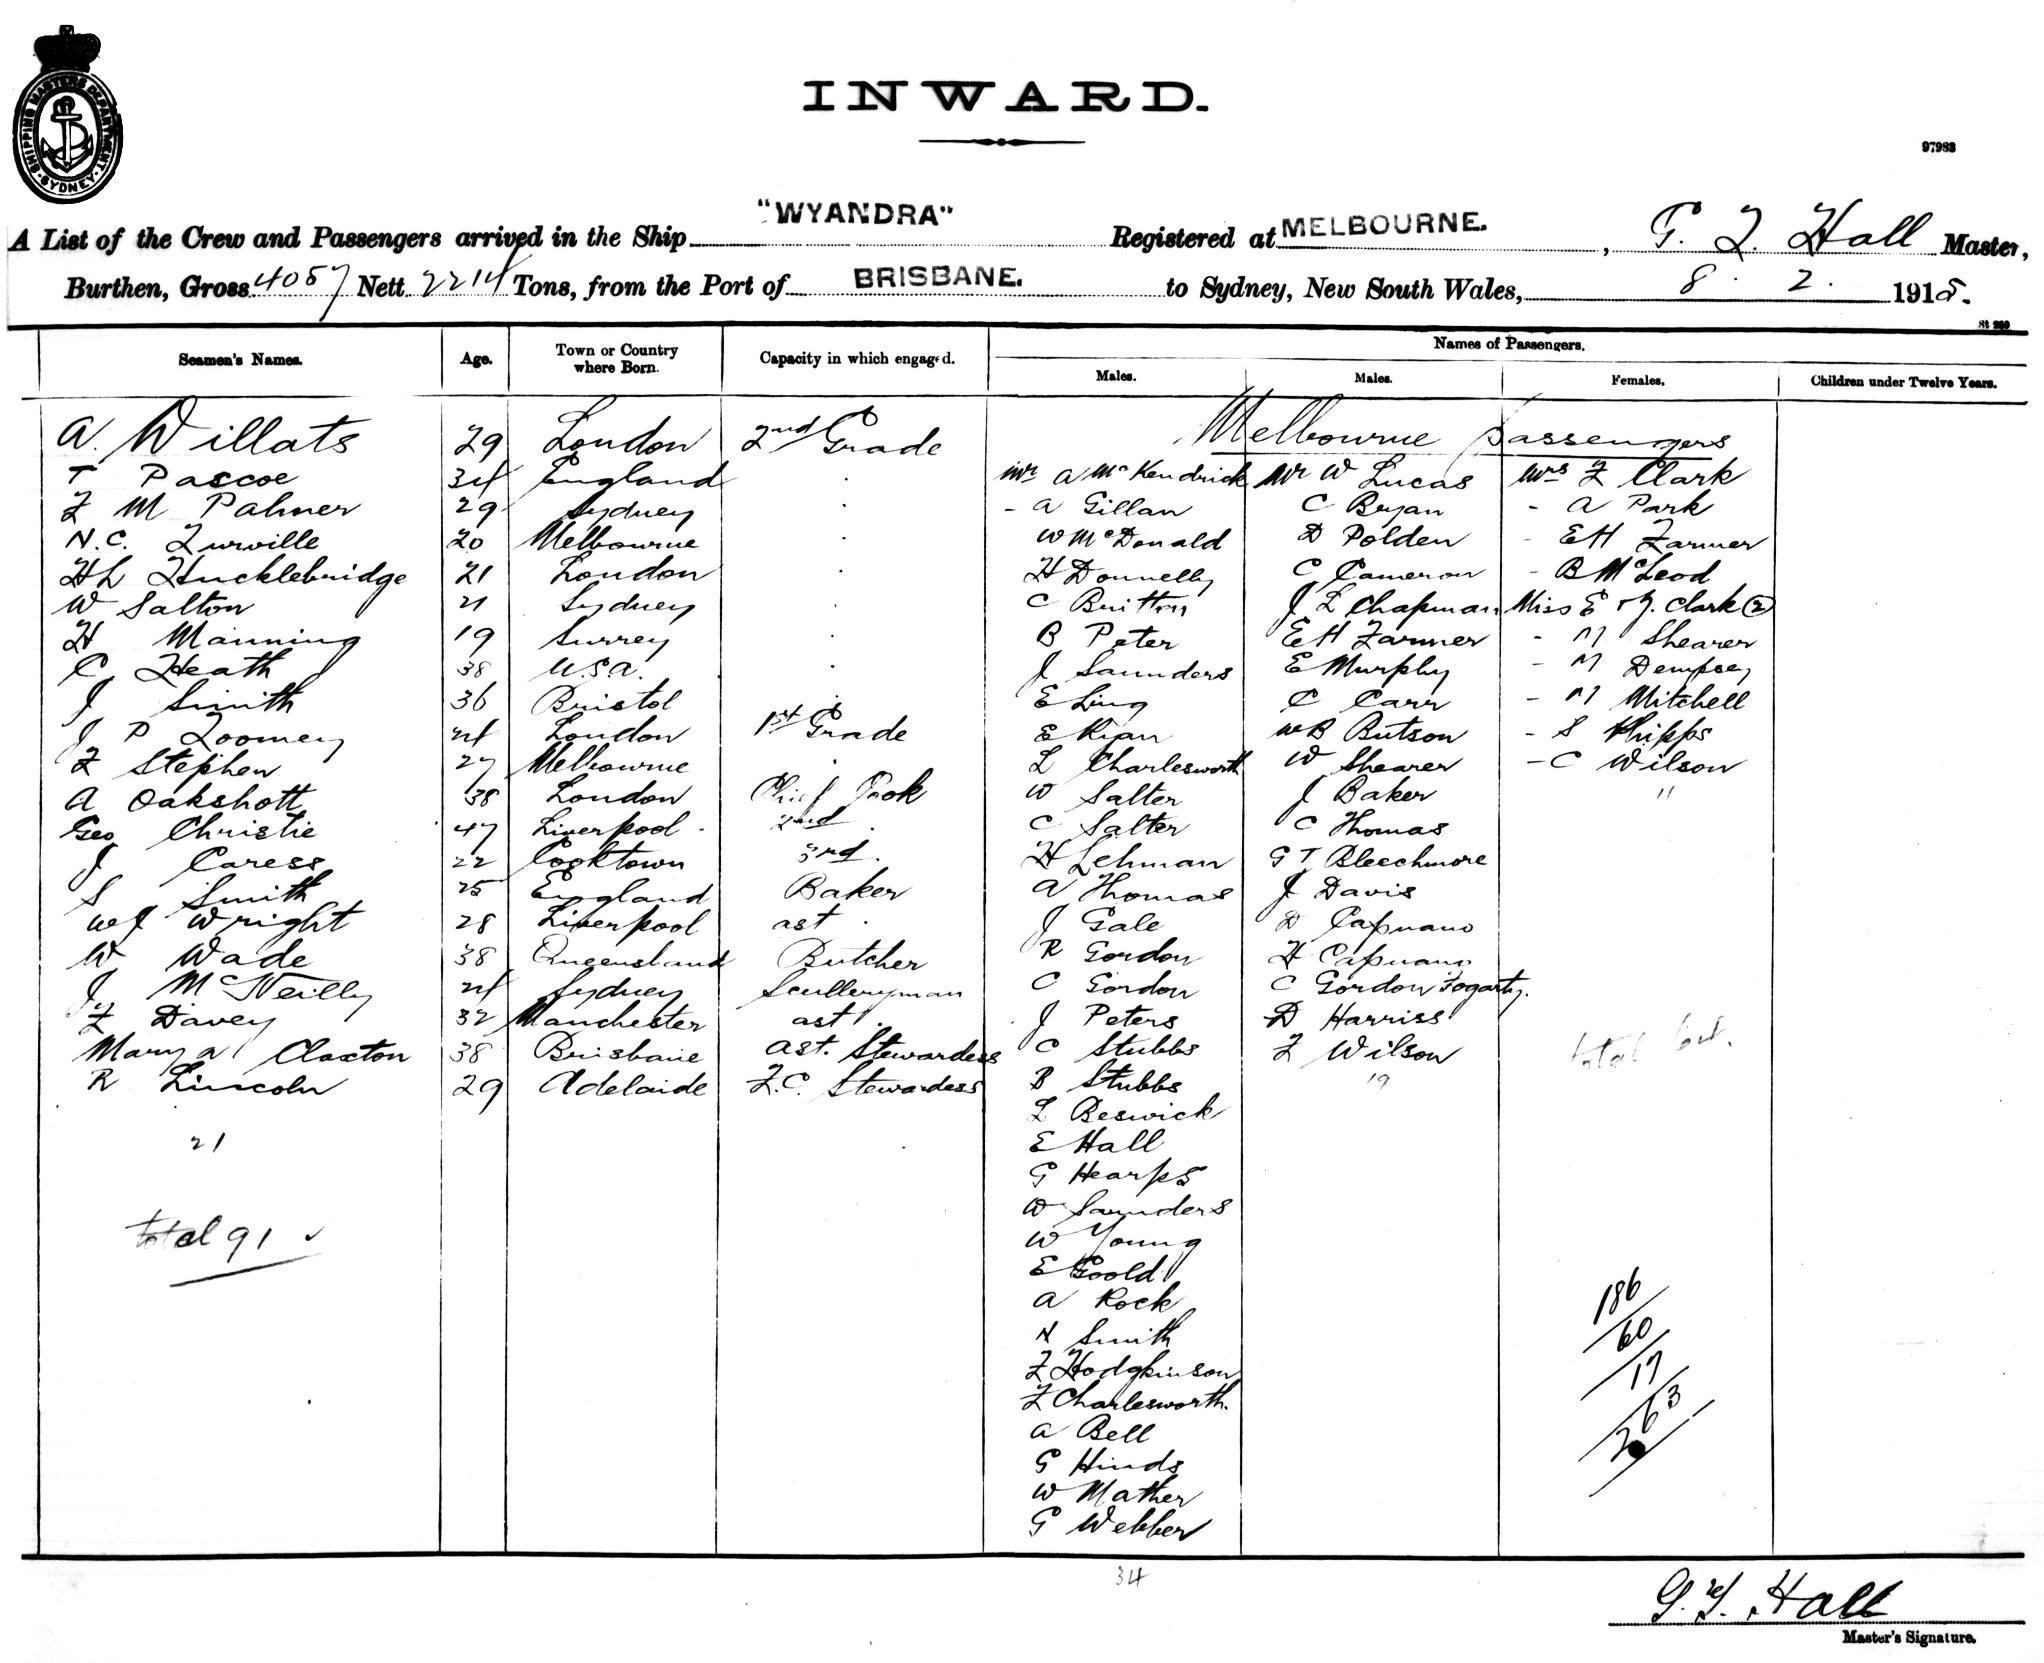 SHIPPING MASTERS DEPARTMENT. SYDNEY
INWARD.
97983
A List of the Crew and Passengers arrived in the Ship "WYANDRA" Registered at MELBOURNE. , G. T. Hall Master,
Burthen, Gross 4057 Nett 2214 Tons, from the Port of BRISBANE. to Sydney, New South Wales, 8 . 2 . 1915.
St 260
Seamen's Names. Age. Town or Country where Born. Capacity in which engaged. Names of Passengers.
Males. Males. Females. Children under Twelve Years.
Melbourne Passengers
A. Willats 29 London 2nd Grade
T Pascoe 34 England "
F M Palmer 29 Sydney "
N.C. Turville 20 Melbourne "
HL Hucklebridge 21 London "
W Salton 21 Sydney "
H Manning 19 Surrey "
C Heath 38 U.S.A. "
J Smith 36 Bristol "
J P Toomey 24 London 1st Grade
F Stephen 27 Melbourne "
A Oakshott 38 London Chief Cook
Geo Christie 47 Liverpool 2nd "
J Caress 22 Cooktown 3rd "
S Smith 25 England Baker
WJ Wright 28 Liverpool ast "
W Wade 38 Queensland Butcher
J McNeilly 24 Sydney Sculleryman
F Davey 32 Manchester ast "
Mary A Claxton 38 Brisbane Ast. Stewardess
R Lincoln 29 Adelaide F.C. Stewardess
21
total 91
Mr A McKendrick
- A Gillan
W McDonald
H Donnelly
C Britton
B Peter
J Saunders
E Ling
E Kian
L Charlesworth
W Salter
C Salter
H Lehman
A Thomas
J Gale
R Gordon
C Gordon
J Peters
C Stubbs
B Stubbs
L Beswick
E Hall
G Hearps
W Saunders
W Young
E Goold
A Rock
N Smith
F Hodgkinson
F Charlesworth.
A Bell
G Hinds
W Mather
G Webber
34
Mr W Lucas
C Bryan
D Polden
C Cameron
J L Chapman
EH Farmer
E Murphy
C Carr
WB Butson
W Shearer
J Baker
C Thomas
G T Bleechmore
J Davis
D Capuano
H Capuano
C Gordon Fogarty.
D Harriss
F Wilson
19
Mrs F Clark
- A Park
- EH Farmer
- B McLeod
Miss E & J. Clark (2)
- M Shearer
- M Dempsey
- M Mitchell
- S Phipps
- C Wilson
11
186
60
17
263
G.T. Hall
Master's Signature.